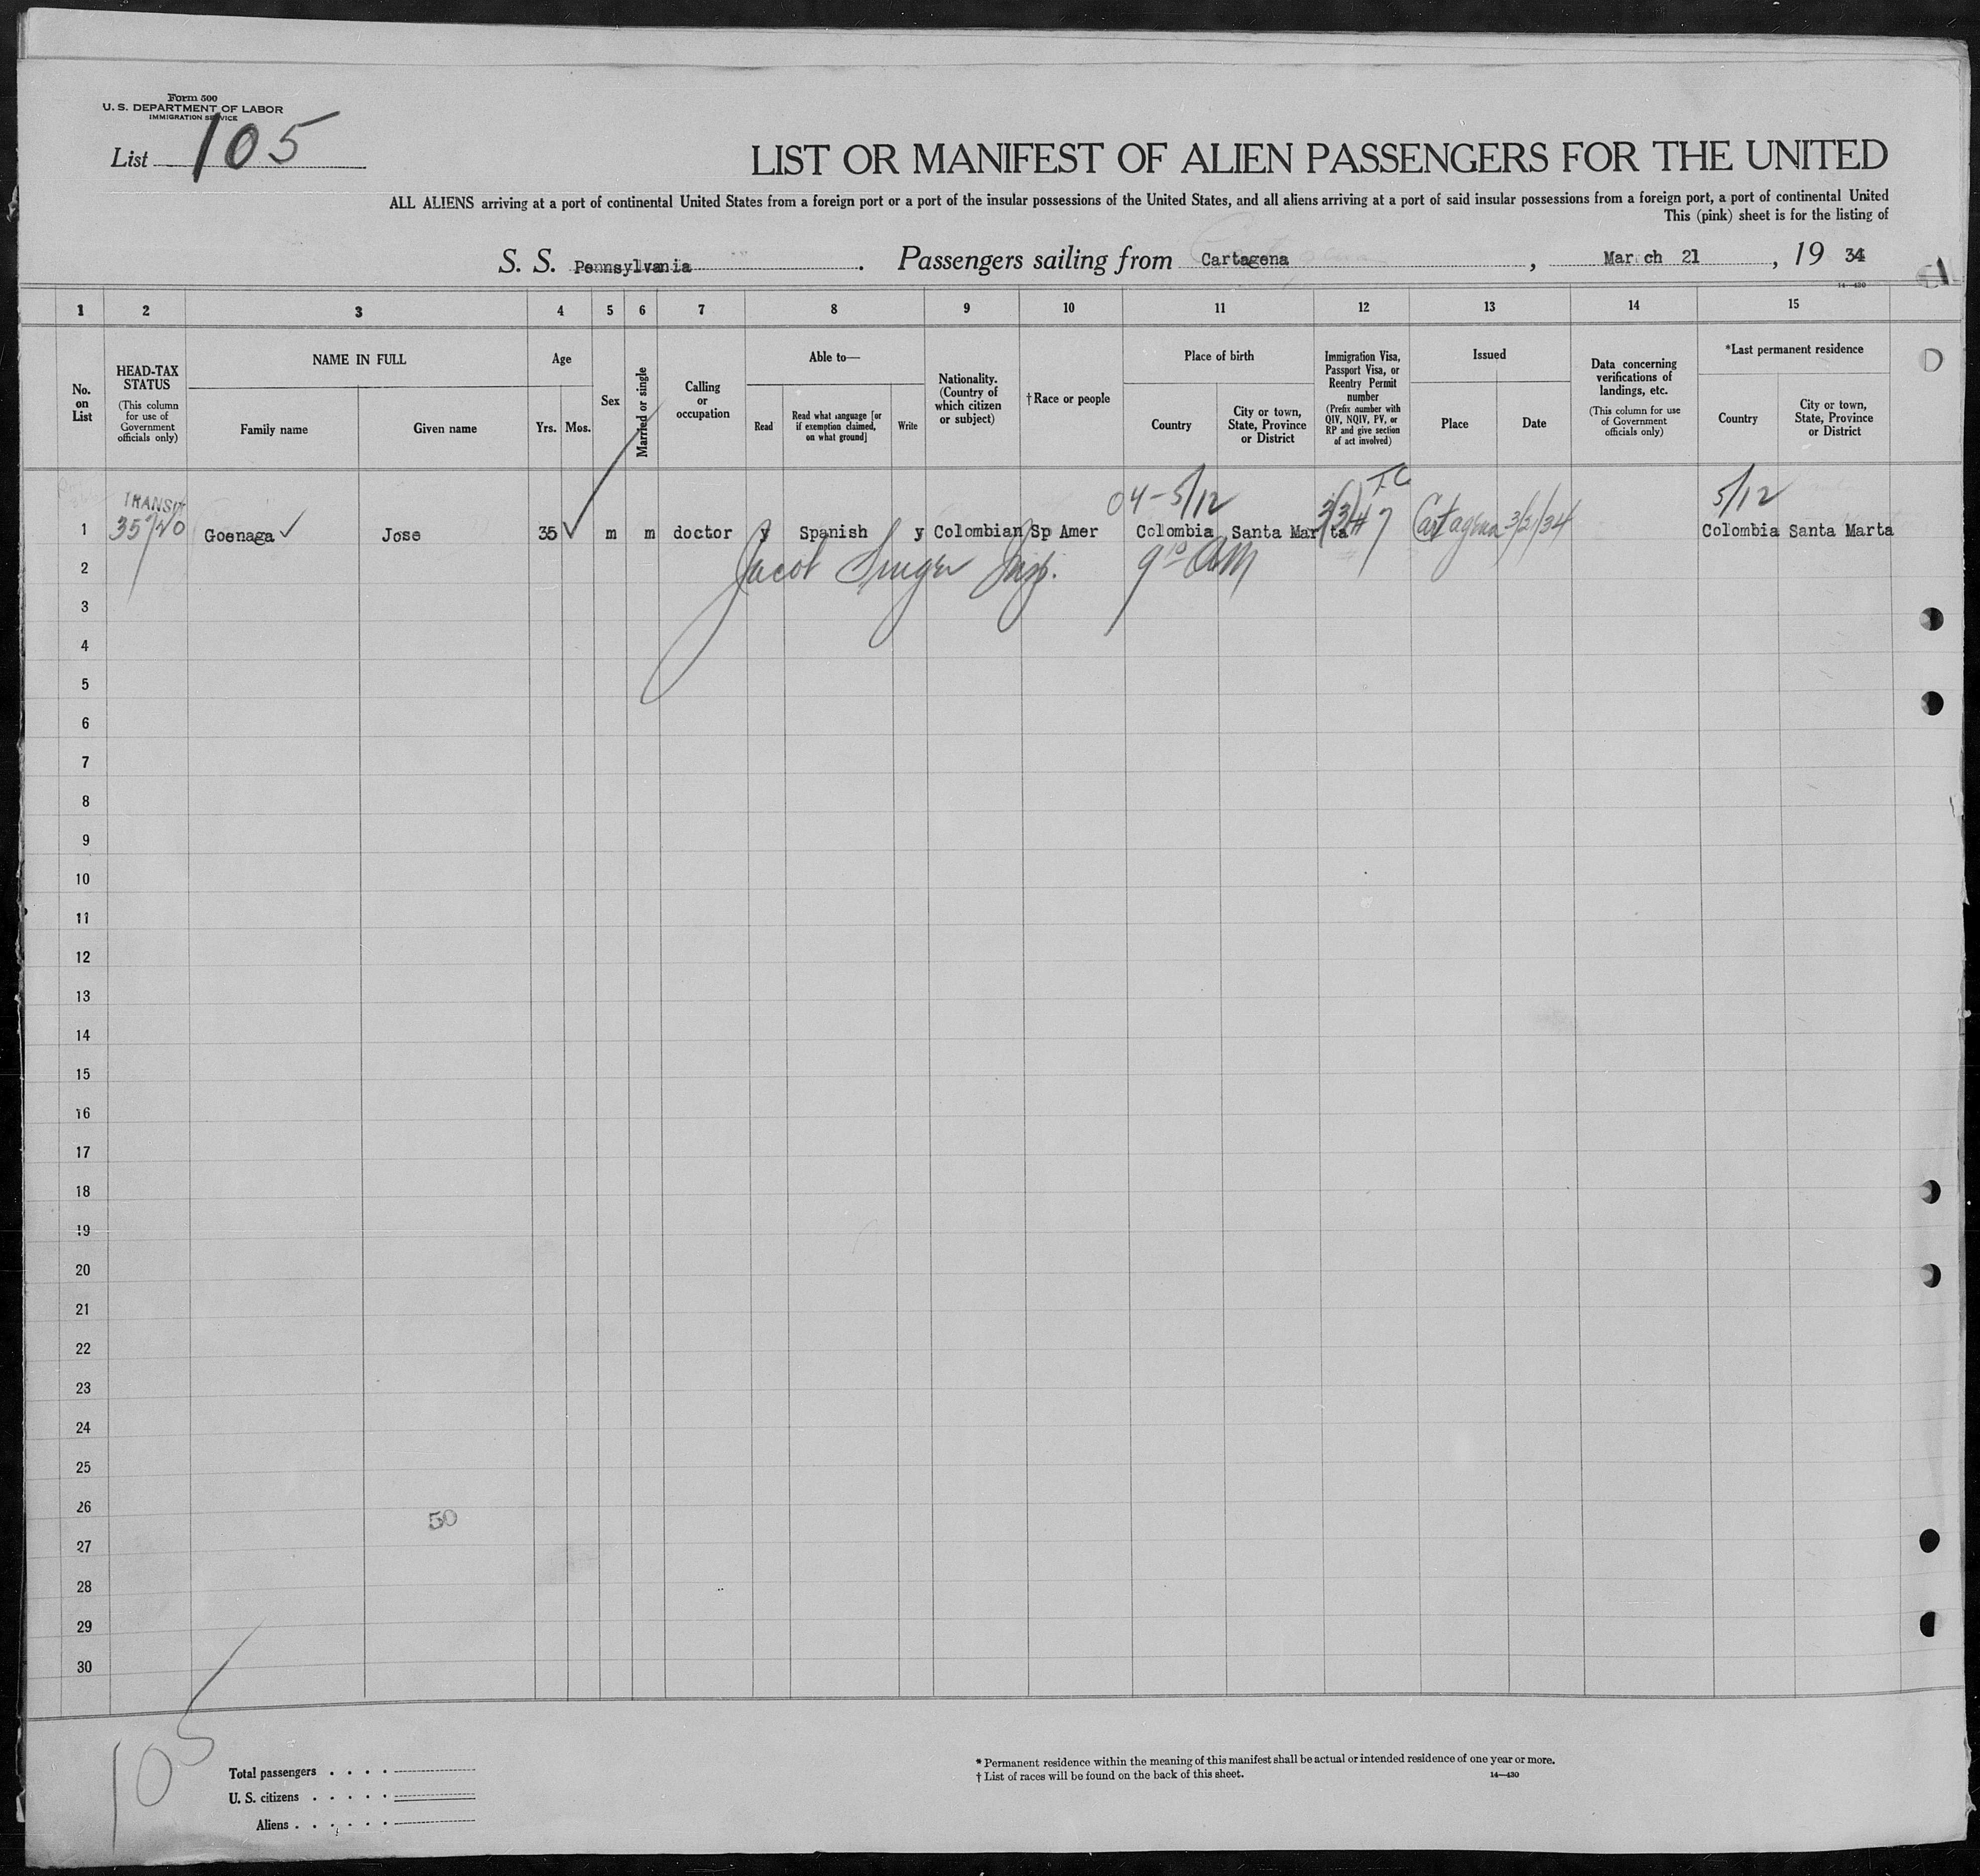 Form 500
U. S. DEPARTMENT OF LABOR
IMMIGRATION SERVICE
List 105
LIST OR MANIFEST OF ALIEN PASSENGERS FOR THE UNITED
ALL ALIENS arriving at a port of continental United States from a foreign port or a port of the insular possessions of the United States, and all aliens arriving at a port of said insular possessions from a foreign port, a port of continental United
This (pink) sheet is for the listing of
S. S. Pennsylvania . Passengers sailing from Cartagena , March 21 , 19 34
14-430
1 2 3 4 5 6 7 8 9 10 11 12 13 14 15
No. on List
HEAD-TAX STATUS
(This column for use of Government officials only)
NAME IN FULL
Family name
Given name
Age
Yrs.
Mos.
Sex
Married or single
Calling or occupation
Able to—
Read
Read what language [or if exemption claimed, on what ground]
Write
Nationality. (Country of which citizen or subject)
†Race or people
Place of birth
Country
City or town, State, Province or District
Immigration Visa, Passport Visa, or Reentry Permit number
(Prefix number with QIV, NQIV, PV, or RP and give section of act involved)
Issued
Place
Date
Data concerning verifications of landings, etc.
(This column for use of Government officials only)
*Last permanent residence
Country
City or town, State, Province or District
TRANSIT
04-5/12
T.C.
5/12
1 Goenaga ✓ Jose 35 ✓ m m doctor y Spanish y Colombian Sp Amer Colombia Santa Marta Cartagena 3/21/34 Colombia Santa Marta
2 Jacob Singer Insp. 9 10 AM
3
4
5
6
7
8
9
10
11
12
13
14
15
16
17
18
19
20
21
22
23
24
25
26
50
27
28
29
30
105
Total passengers . . . .
U. S. citizens . . . . .
Aliens . . . . . .
* Permanent residence within the meaning of this manifest shall be actual or intended residence of one year or more.
† List of races will be found on the back of this sheet.
14—430